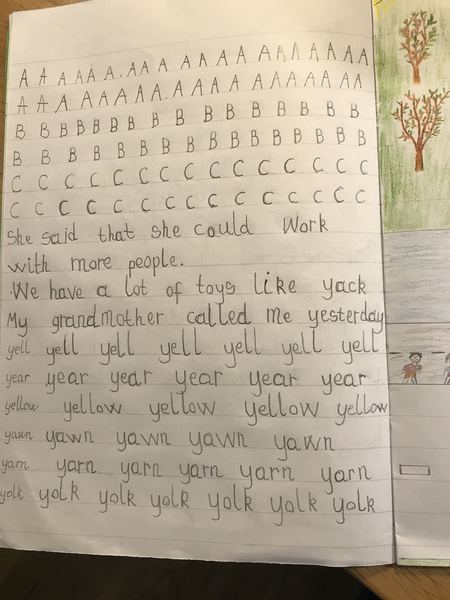 A A A A A A A A A A A A A A A A A A A A
A A A A A A A A A A A A A A A A A A
B B B B B B B B B B B B B B B B
B B B B B B B B B B B B B B B B
C C C C C C C C C C C C C C C
C C C C C C C C C C C C C C C
She said that she could Work
with more people.
.We have a lot of toys like yack
My grandmother called me yesterday
yell yell yell yell yell yell yell
year year year year year year
yellow yellow yellow yellow yellow
yawn yawn yawn yawn yawn
yarn yarn yarn yarn yarn yarn
yolk yolk yolk yolk yolk yolk yolk